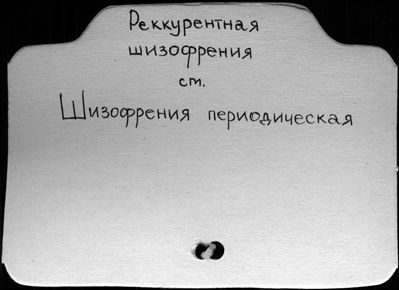 Реккурентная
шизофрения
см.
Шизофрения периодическая